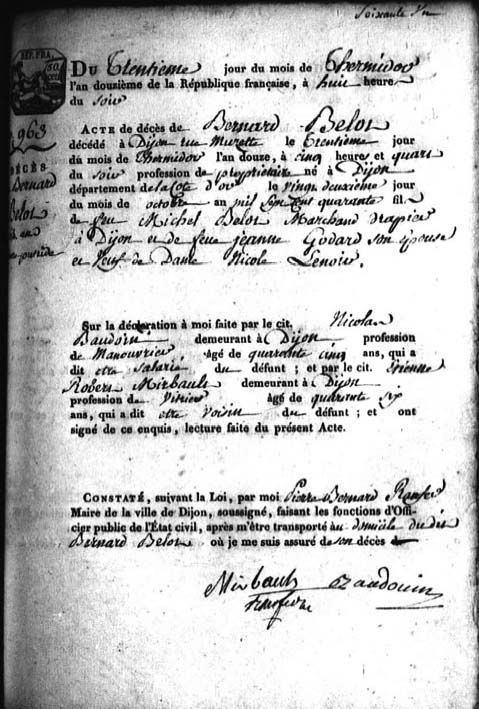 Soixante Un
REP. FRA.
50
963
DÉCÈS
Bernard
Belot
DU Trentieme jour du mois de Thermidor
l'an douzième de la République française, à huit heure
du soir
ACTE de décès de Bernard Belot
décédé à Dijon rue Musette le trentieme jour
du mois de Thermidor l'an douze, à cinq heures et quart
du soir profession de propriétaire né à Dijon
département de la Cote d'or le vingt deuxieme jour
du mois de octobre an mil sept cent quarante fils
de feu Michel Belot Marchand drapier
à Dijon et de feue jeanne Godard son épouse
et Veuf de Dame Nicole Lenoir.
Sur la déclaration à moi faite par le cit. Nicolas
Baudoin demeurant à Dijon profession
de Manouvrier âgé de quarante cinq ans, qui a
dit etre salarié du défunt ; et par le cit. Etienne
Robert Mirbault demeurant à Dijon
profession de Vitrier âgé de quarante six
ans, qui a dit etre voisin du défunt ; et ont
signé de ce enquis, lecture faite du présent Acte.
CONSTATÉ, suivant la Loi, par moi Pierre Bernard Ranfer
Maire de la ville de Dijon, soussigné, faisant les fonctions d'Offi-
cier public de l'État civil, après m'être transporté au domicile du dit
Bernard Belot où je me suis assuré de son décès
Mirbault Baudouin